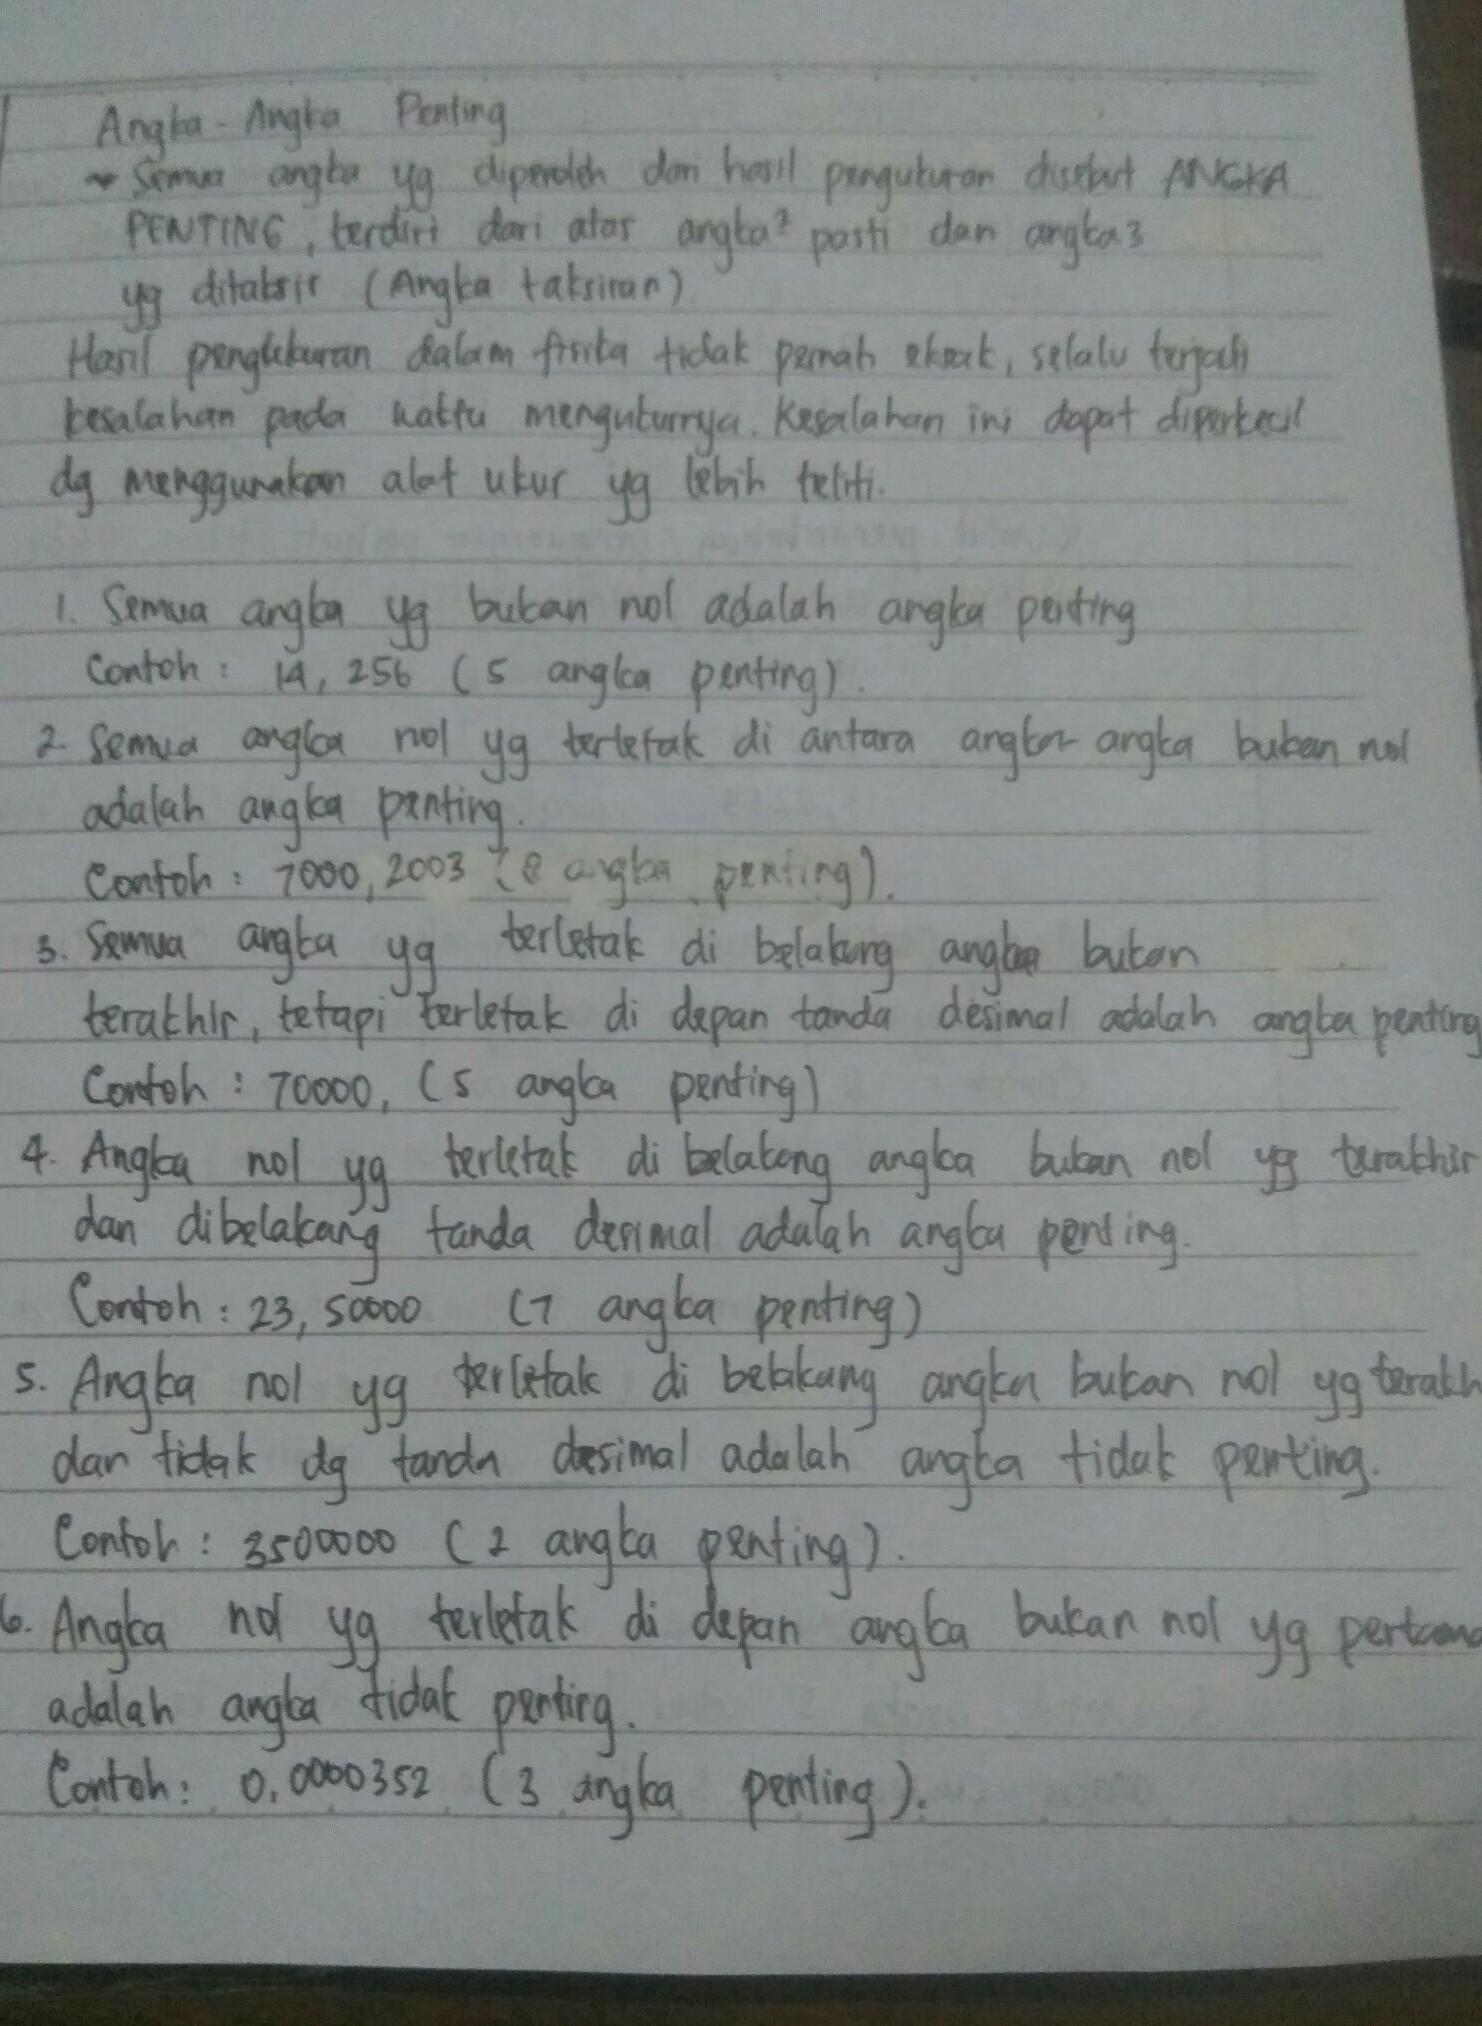 Angka-Angka Penting
~ Semua angka yg diperoleh dari hasil pengukuran disebut ANGKA
PENTING, terdiri dari atas angka² pasti dan angka3
yg ditaksir (Angka taksiran)
Hasil pengukuran dalam fisika tidak pernah eksak, selalu terjadi
kesalahan pada waktu mengukurnya. Kesalahan ini dapat diperkecil
dg menggunakan alat ukur yg lebih teliti.
1. Semua angka yg bukan nol adalah angka penting
Contoh : 14, 256 (5 angka penting).
2. Semua angka nol yg terletak di antara angka-angka bukan nol
adalah angka penting.
Contoh : 7000, 2003 (8 angka penting).
3. Semua angka yg terletak di belakang angka bukan
terakhir, tetapi terletak di depan tanda desimal adalah angka penting
Contoh : 70000, (5 angka penting)
4. Angka nol yg terletak di belakang angka bukan nol yg terakhir
dan dibelakang tanda desimal adalah angka penting.
Contoh : 23, 50000 (7 angka penting)
5. Angka nol yg terletak di belakang angka bukan nol yg terakh
dan tidak dg tanda desimal adalah angka tidak penting.
Contoh : 3500000 (2 angka penting).
6. Angka nol yg terletak di depan angka bukan nol yg pertama
adalah angka tidak penting.
Contoh : 0,0000352 (3 angka penting).